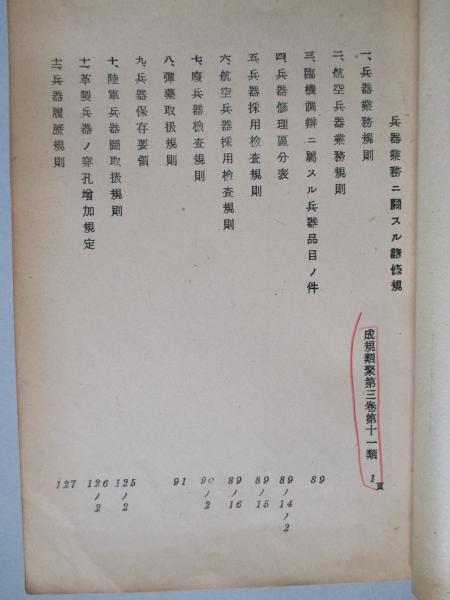 兵器業務ニ關スル諸條規
成規類聚第三巻第十一類
一、兵器業務規則 1頁
二、航空兵器業務規則
三、臨機調辨ニ屬スル兵器品目ノ件 89
四、兵器修理區分表 89ノ14ノ2
五、兵器採用檢査規則 89ノ15
六、航空兵器採用檢査規則 89ノ16
七、廢兵器檢査規則 90ノ2
八、彈藥取扱規則 91
九、兵器保存要領
十、陸軍兵器圖取扱規則 125ノ2
十一、革製兵器ノ穿孔增加規定 126ノ2
十二、兵器履歷規則 127